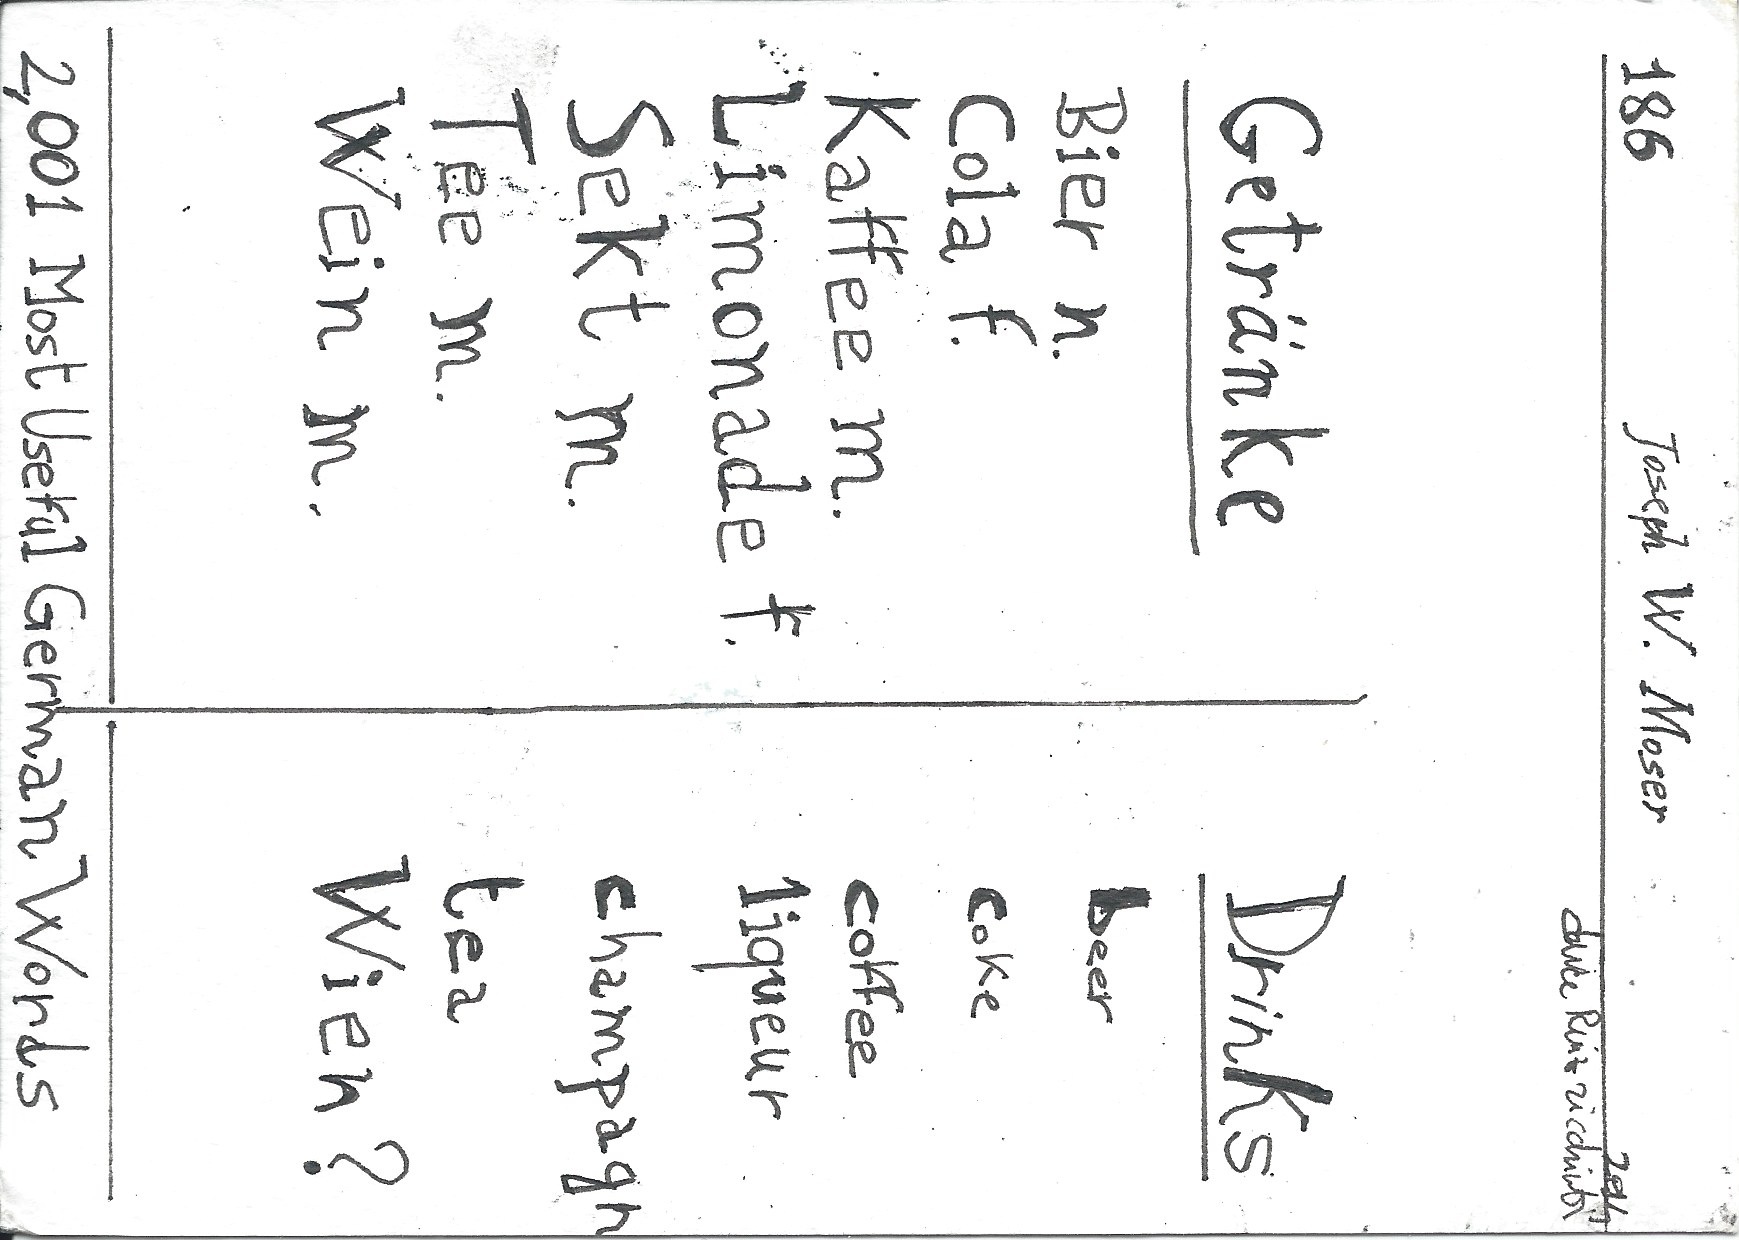 186 Joseph W. Moser
Getränke
Drinks
Bier n.
beer
Cola f.
coke
Kaffee m.
coffee
Limonade f.
liqueur
Sekt m.
champagn
Tee m.
tea
Wein m.
Wien?
2,001 Most Useful German Words